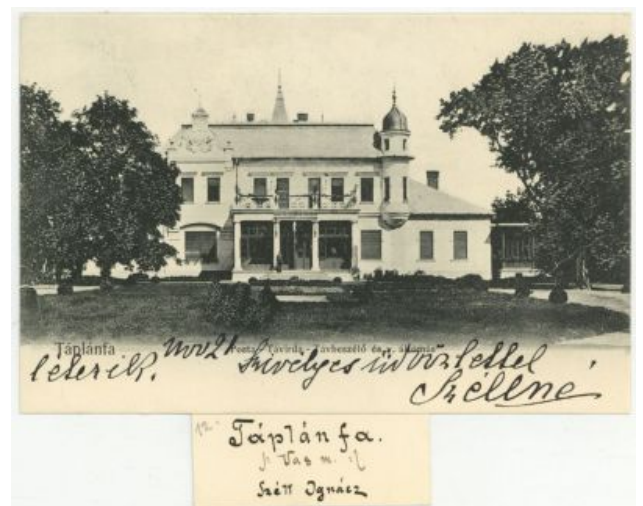 Táplánfa
Posta - Távirda - Távbeszélő és v. állomás
letezik. Nov 21 Szivélyes üdvözlettel
Széllné
12.
Táplánfa.
/: Vas m. :/
Széll Ignácz